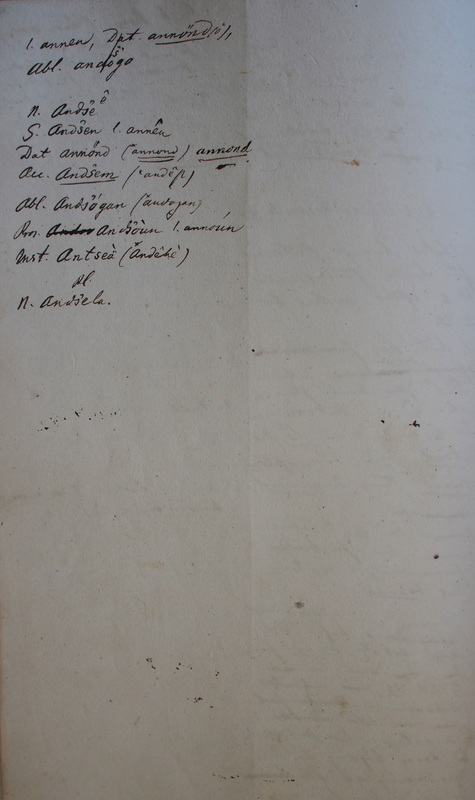 l. annen, Dat. annönd
Abl. andögo
N. Andsê
G. Andsen l. annêu
Dat annönd (annond) annond
Acc. Andsem (andês)
Abl. Andsógan (andogan)
Andsöun l. annoún
Inst. Antseà (Andéhè)
Pl.
N. Andsela.